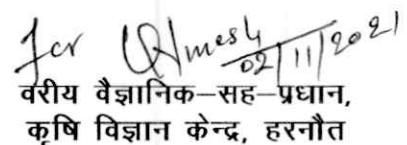 for Umesh
02/11/2021
वरीय वैज्ञानिक–सह–प्रधान,
कृषि विज्ञान केन्द्र, हरनौत